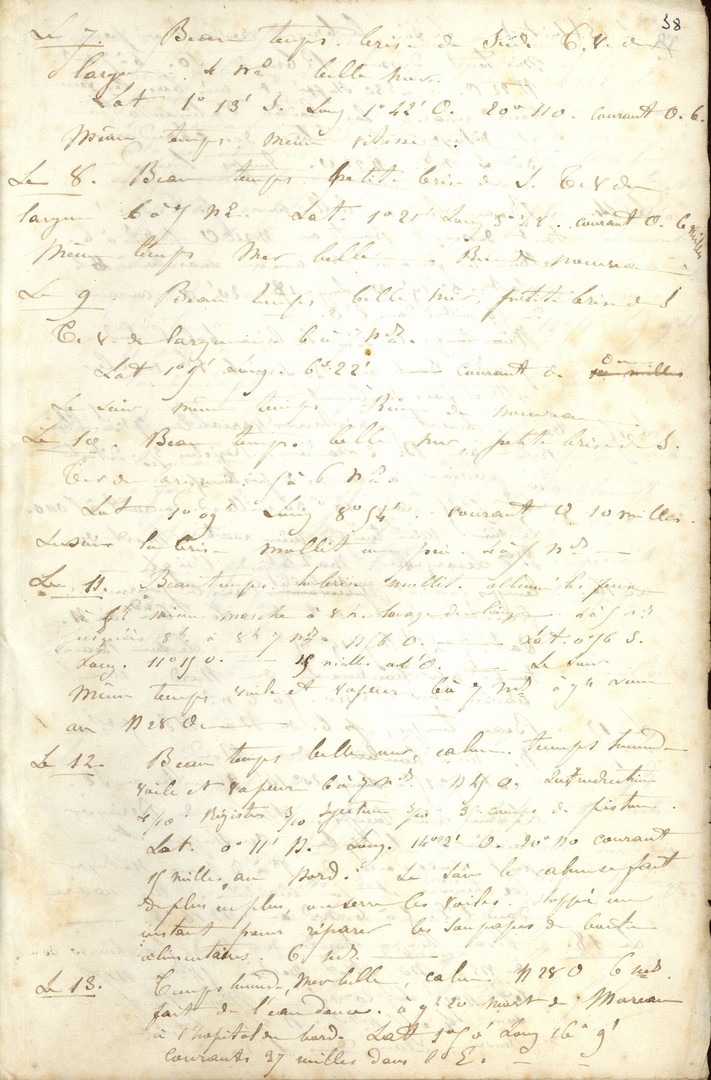 38
Le 7. Beau temps. brise de Sud. T. v. du
largue. 4 nds belle mer.
Lat 1° 13' S. Long 1° 42' O. courant O. 6.
Même temps même vitesse.
Le 8. Beau temps petite brise de S. T. v. du
largue 6 à 7 nds. Lat. 1° 21' Long 3° 48'. courant O. 6 milles
Même temps Mer belle Rien de nouveau
Le 9 Beau temps belle mer, petite brise de S
T. v. du largue 6 à 7 nds.
Lat 1° 9' Long 6° 22' courant O.
Le Soir même temps Rien de nouveau
Le 10. Beau temps. belle mer, petite brise de S.
T. v. du largue 5 à 6 nds.
Lat 1° 09' Long 8° 54'. courant O. 10 milles.
Le soir la brise mollit un peu. 4 à 5 nds
Le 11. Beau temps. la brise mollit. allumé les feux
à même marche à lavage du linge. 4 à 5 nds
jusqu'à 8h, à 8h 7 nds N 56 O. Lat. 0° 56 S.
Long. 11° 15 O. 15 milles à l'O. Le Soir
Même temps voile et vapeur 6 à 7 nds à 9h
au N 28 O
Le 12. Beau temps belle mer calme. temps humide
voile et vapeur 6 à 7 nds. N 45 O. Introduction
4/10 Registre 3/10 Injection 3/10 coups de piston.
Lat. 0° 11' N. Long. 14° 2' O. courant
15 milles au Nord. Le Soir le calme se fait
de plus en plus on serre les voiles. Stoppé un
instant pour réparer les soupapes de boîte
alimentaires. 6 nds.
Le 13. Temps humide, Mer belle, calme N 28 O 6 nds.
fait de l'eau douce. à 9h 20 mort de Moreau
à l'hôpital du bord. Lat 1° 50' Long 16° 9'
courants 37 milles dans l'E.